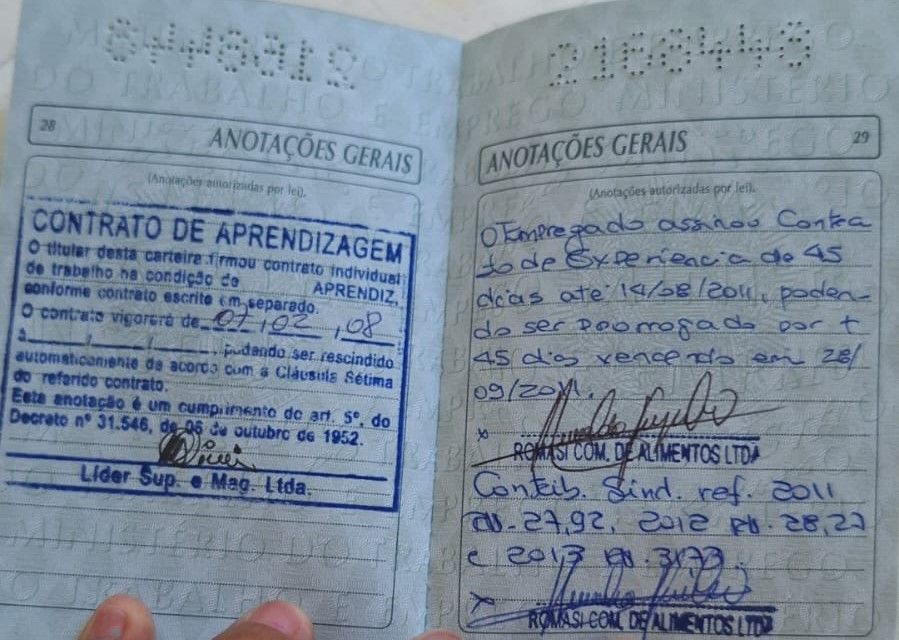 28
ANOTAÇÕES GERAIS
(Anotações autorizadas por lei).
CONTRATO DE APRENDIZAGEM
O titular desta carteira firmou contrato individual
de trabalho na condição de APRENDIZ,
conforme contrato escrito em separado.
O contrato vigorará de 07, 02, 08
à / / , podendo ser rescindido
automaticamente de acordo com a Cláusula Sétima
do referido contrato.
Esta anotação é um cumprimento do art. 5º, do
Decreto nº 31.546, de 06 de outubro de 1952.
Líder Sup. e Mag. Ltda.
29
ANOTAÇÕES GERAIS
(Anotações autorizadas por lei).
O Empregado assinou Contra
to de Experiencia de 45
dias até 14/08/2011, poden-
do ser prorrogado por +
45 dias vencendo em 28/
09/2011.
x
ROMASI COM. DE ALIMENTOS LTDA
Contrib. Sind. ref. 2011
27,92, 2012 28,27
e 2013 31,77
x
ROMASI COM. DE ALIMENTOS LTDA